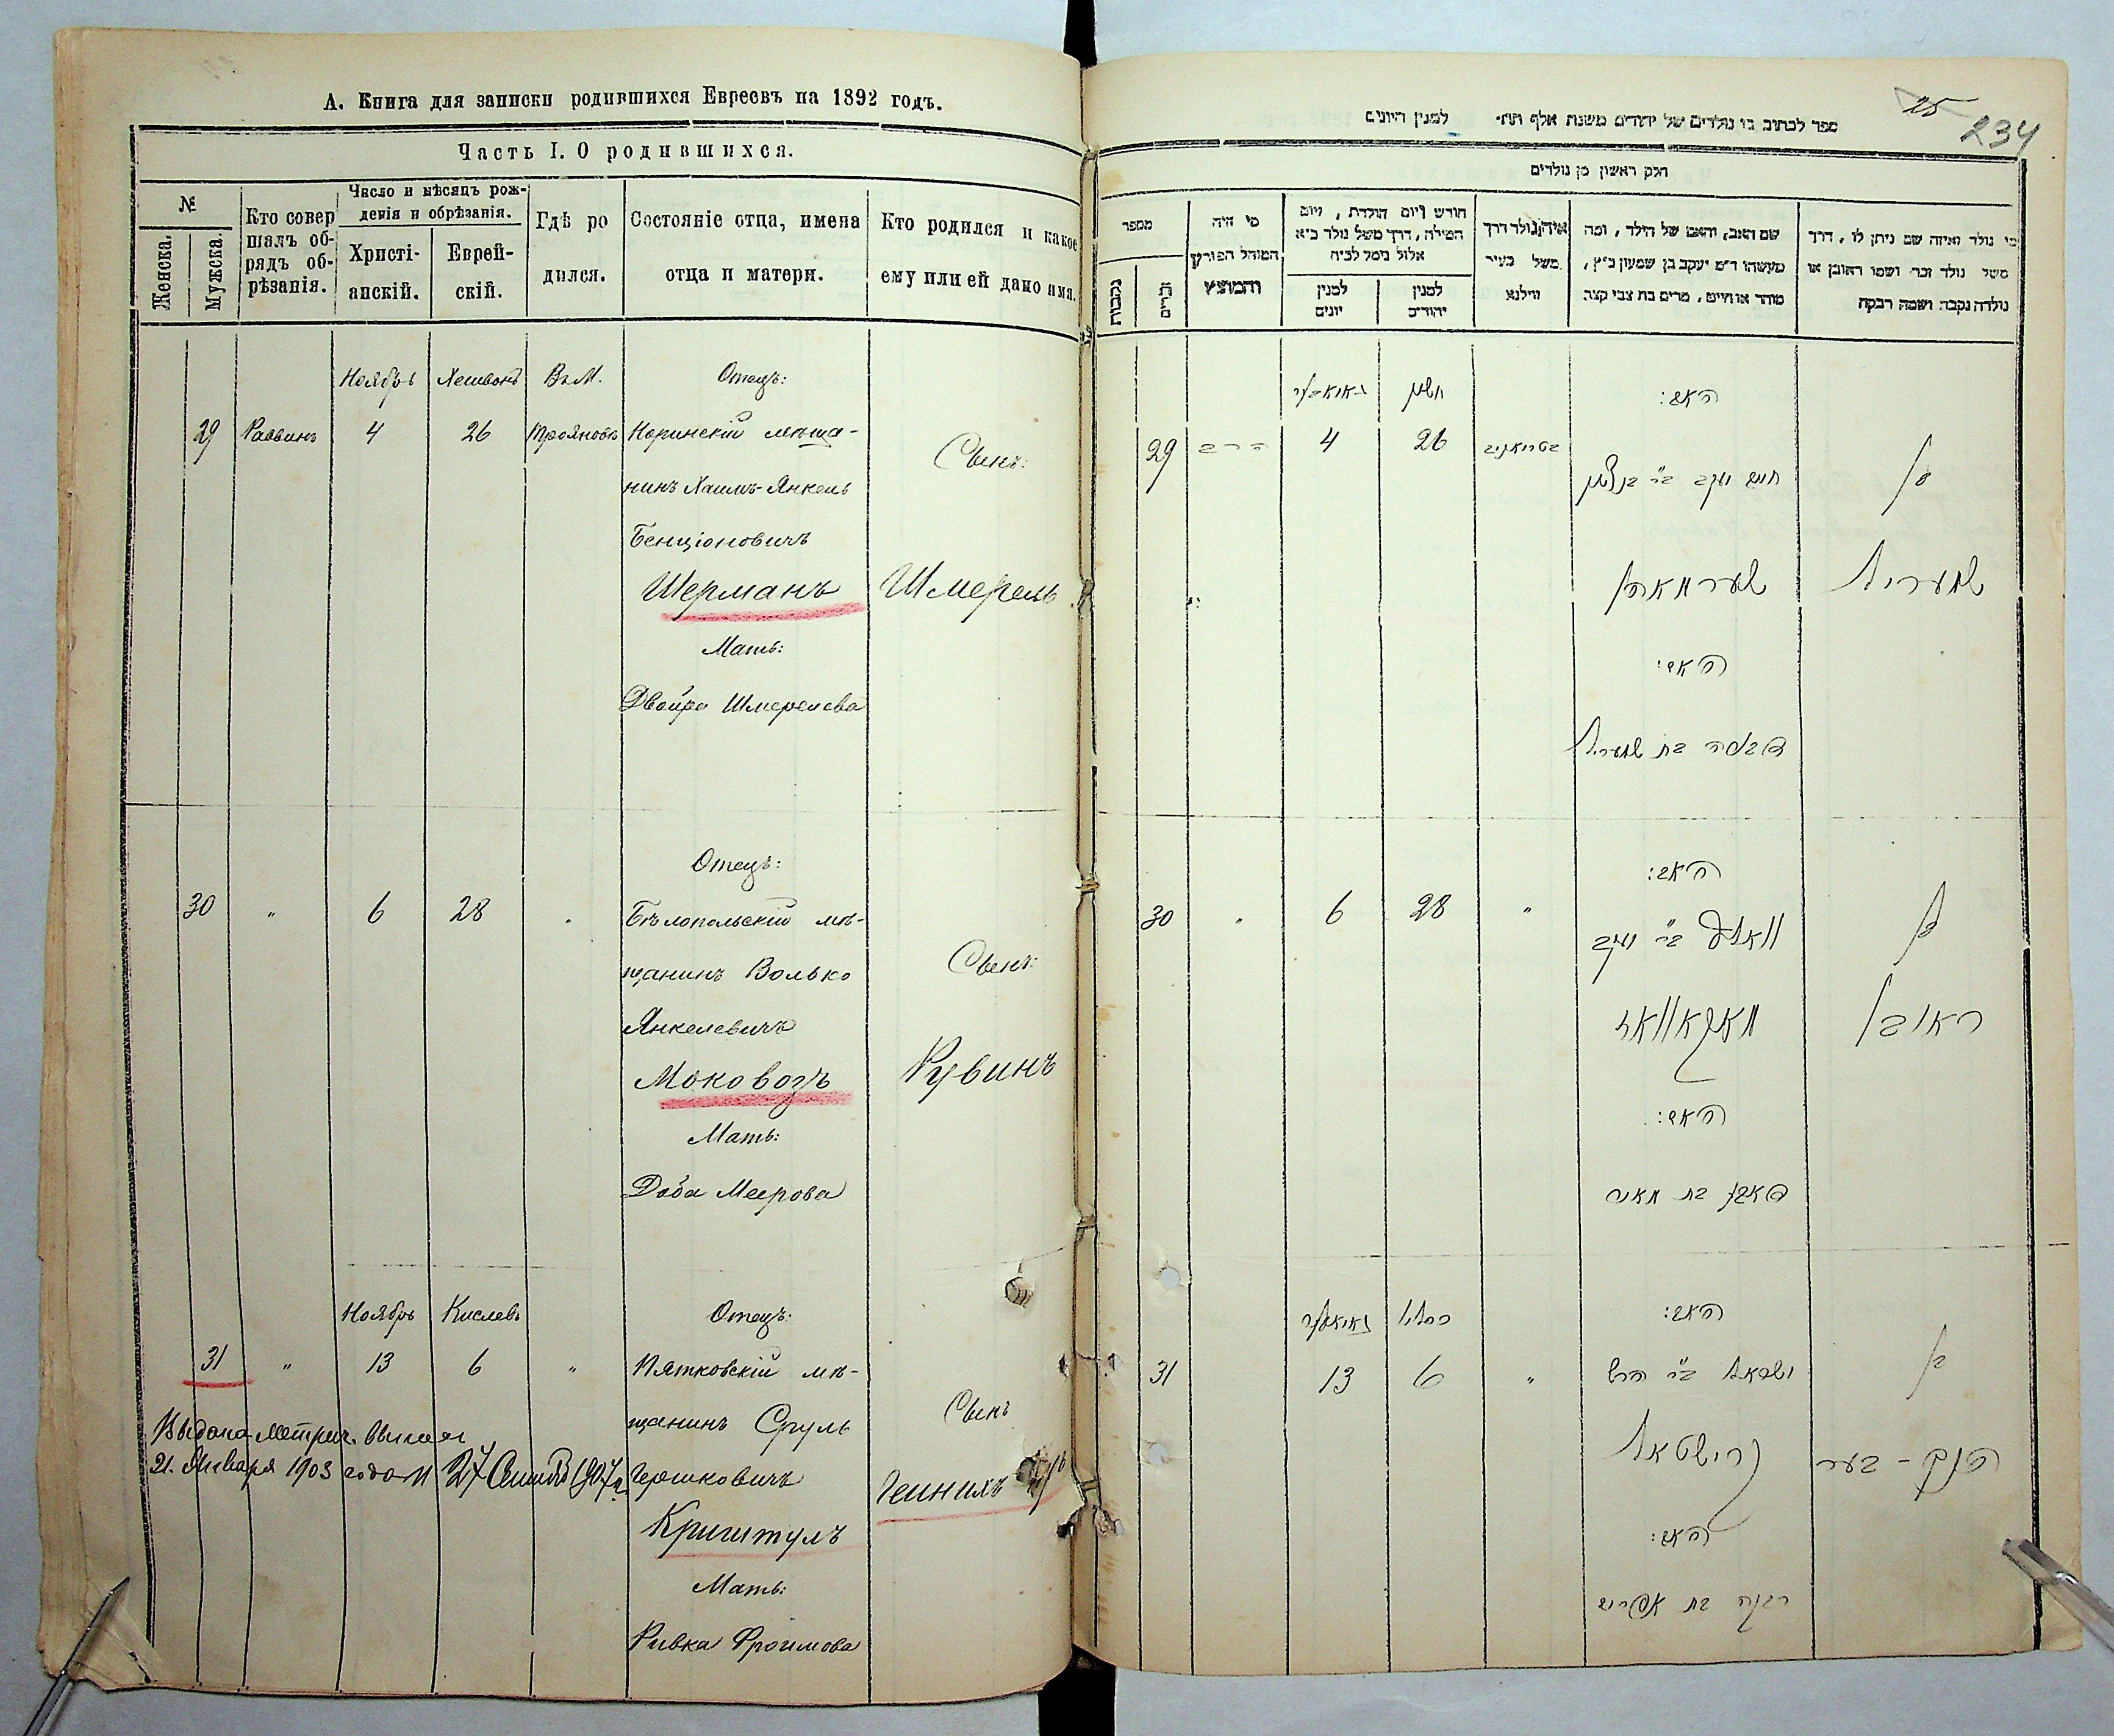 А. Книга для записки родившихся Евреевъ на 1892 годъ.
Часть I. О родившихся.
№
Женска.
Мужска.
Кто совер
шалъ об-
рядъ об-
рѣзанія.
Число и мѣсяцъ рож-
денія и обрѣзанія.
Христі-
анскій.
Еврей-
скій.
Гдѣ ро
дился.
Состояніе отца, имена
отца и матери.
Кто родился и какое
ему или ей дано имя.
Ноябрь Хешвонъ ВъМ. Отецъ:
29 Раввинъ 4 26 Трояновъ Норинскій мѣща-
нинъ Хаимъ-Янкель
Бенціоновичъ
Шерманъ
Мать:
Двойра Шмерелева
Сынъ:
Шмерель
Отецъ:
30 " 6 28 " Бѣлопольскій мѣ-
щанинъ Волько
Янкелевичъ
Моковозъ
Мать:
Доба Меерова
Сынъ:
Рувинъ
Ноябрь Кислевъ Отецъ:
31 " 13 6 " Пятковскій мѣ-
щанинъ Сруль
Гершковичъ
Криштулъ
Мать:
Ривка Фроимова
Сынъ
Гейнихъ
Выдана метрич. выпись
21. Января 1903 года и 27 Сентяб 1907 г.
25
234
ספר לכתוב בו נולדים של יהודים משנת אלף תת׳ למנין היונים
חלק ראשון מן נולדים
מספר
נקבות
זכרים
מי היה
המוהל הפורע
והמוצץ
חודש ויום הולדת, ויום
המילה, דרך משל נולד כ״א
אלול נימל לכ״ח
למנין
יונים
למנין
יהודים
איה נולד דרך
משל בעיר
ווילנא
שם האב, והאם של הילד, ומה
מעשהו ד״מ יעקב בן שמעון כ״ץ,
סוחר או חייט, מרים בת צבי קצב
מי נולד ואיזה שם ניתן לו, דרך
משל נולד זכר ושמו ראובן או
נולדה נקבה ושמה רבקה
נאיאבער חשון האב:
29 הרב 4 26 בטראניב
חיים יעקב ב״ר בן ציון
שערמאן
האם:
דבורה בת שמעריל
בן
שמעריל
האב:
30 " 6 28 "
וואלף ב״ר יעקב
מאקאוואז
האם:
דאבע בת מאיר
בן
ראובן
נאיאבער כסלו האב:
31 13 6 "
ישראל ב״ר הרש
קרישטאל
האם:
רבקה בת אפרים
בן
העניך - בער